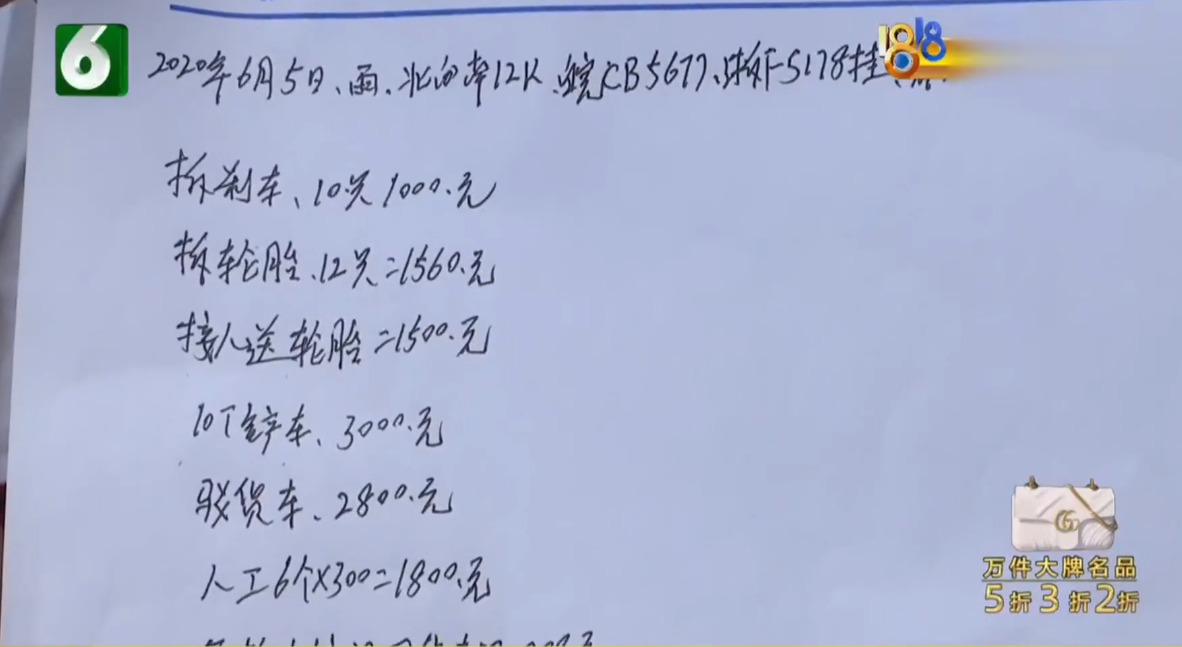 6
1818
2020年6月5日、雨、北向南12K、皖CB5677、皖F5178挂
拆刹车、10只1000.元
拆轮胎、12只=1560.元
接人送轮胎=1500.元
10T铲车、3000.元
驳货车、2800.元
人工6个X300=1800.元
万件大牌名品
5折3折2折